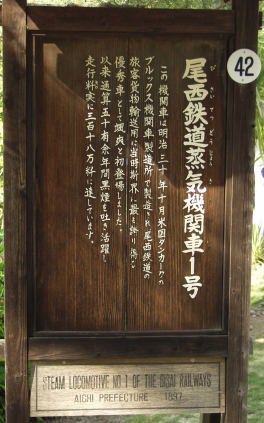 42
尾西鉄道蒸気機関車1号
びさいてつどうじょうき
この機関車は明治三十年十月米国ダンカークの
ブルックス機関車製造所で製造され尾西鉄道の
旅客貨物輸送用に当時斯界に最も誇り得る
優秀車として颯爽と初登場しました。
以来通算五十有余年間黒煙を吐き活躍し
走行粁実に三百十八万粁に達しています。
STEAM LOCOMOTIVE NO.1 OF THE BISAI RAILWAYS
AICHI PREFECTURE 1897